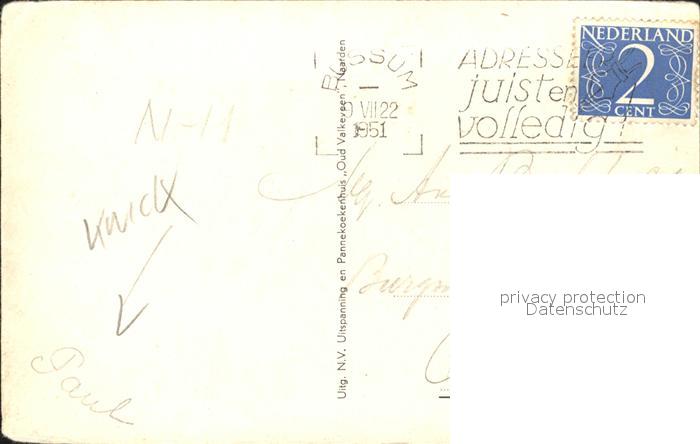 NEDERLAND
2
CENT
BUSSUM
VII 22
1951
ADRESSEER
juist en
volledig!
N-11
KNICK
Paul
Uitg. N.V. Uitspanning en Pannekoekenhuis „Oud Valkeveen", Naarden
privacy protection
Datenschutz